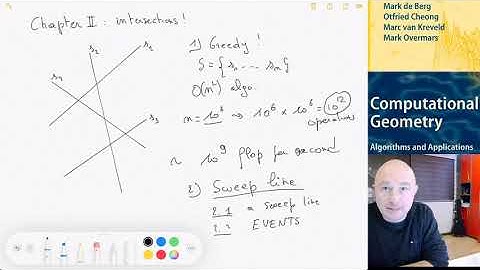 Chapter II : intersections!
s1
s2
s3
s4
1) Greedy!
S = { s1 .... sn }
O(n²) algo.
n = 10⁶ → 10⁶ × 10⁶ = 10¹²
operations
~ 10⁹ flop per second
2) Sweep line
2.1 a sweep line
2.2 EVENTS
Mark de Berg
Otfried Cheong
Marc van Kreveld
Mark Overmars
Computational
Geometry
Algorithms and Applications